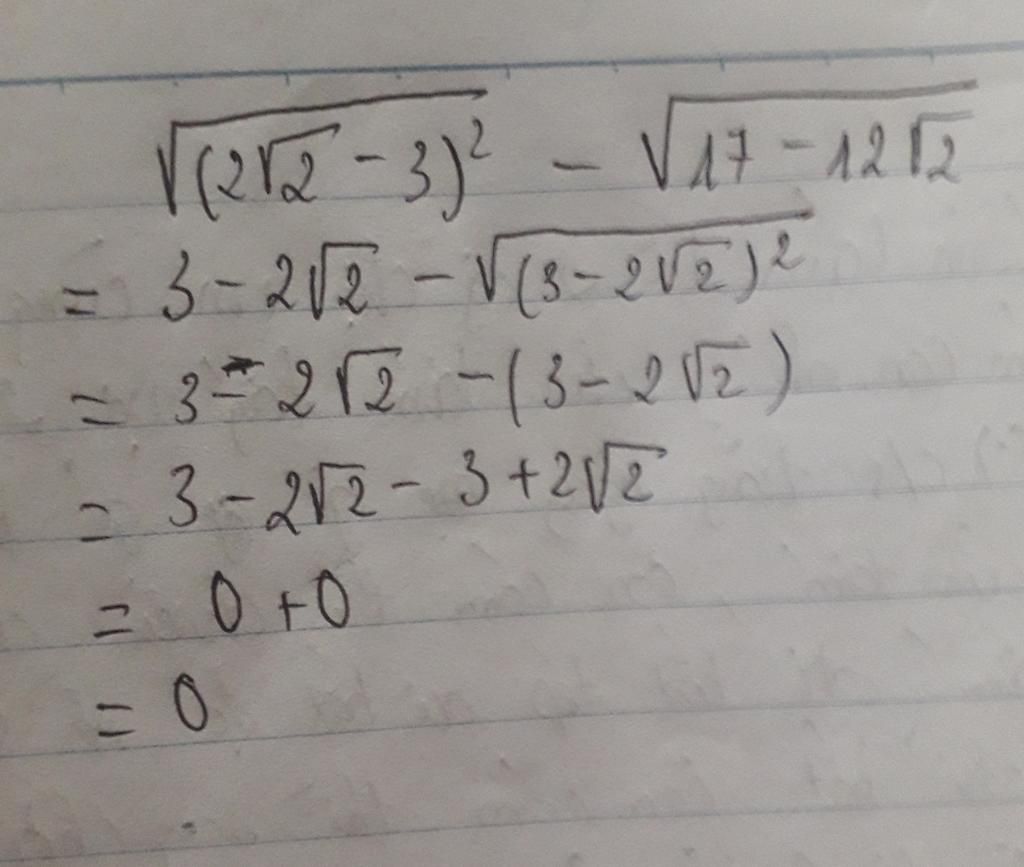 √((2√2 - 3)²) - √(17 - 12√2)
= 3 - 2√2 - √((3 - 2√2)²)
= 3 - 2√2 - (3 - 2√2)
= 3 - 2√2 - 3 + 2√2
= 0 + 0
= 0